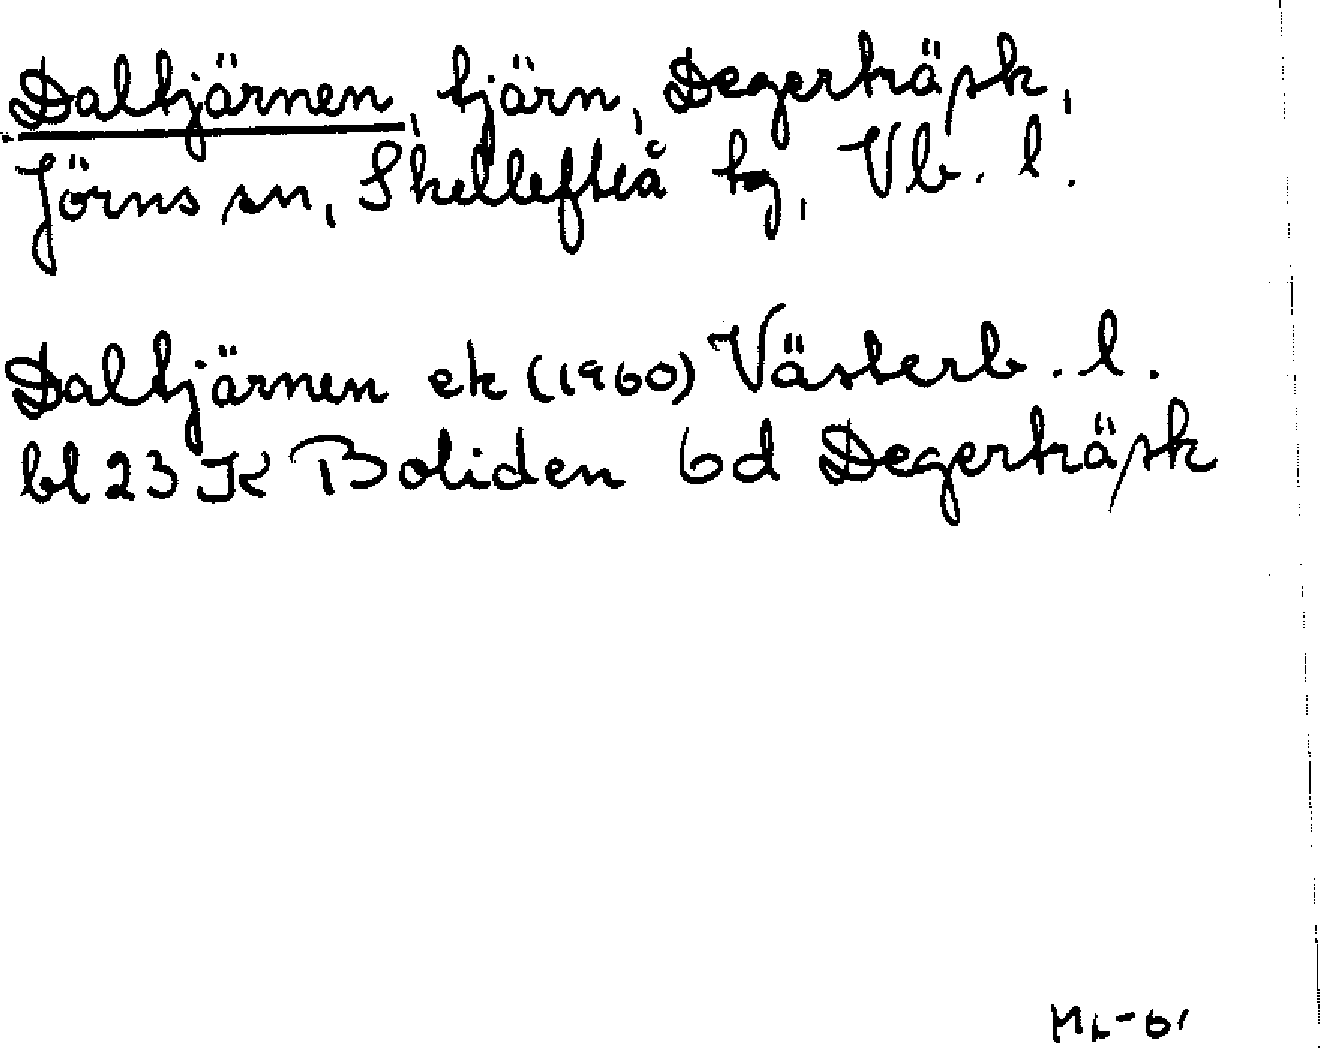 Daltjärnen, tjärn, Degerträsk,
Jörns sn, Skellefteå tg, Vb. l.
Daltjärnen ek (1960) Västerb. l.
bl 23 K Boliden 6d Degerträsk
ML-61